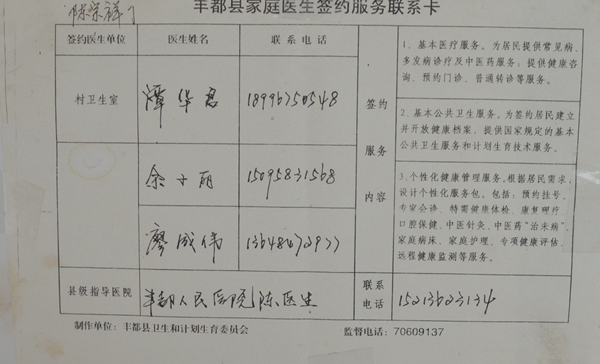 陈宗祥
丰都县家庭医生签约服务联系卡
签约医生单位 医生姓名 联系电话 签约服务内容
1、基本医疗服务。为居民提供常见病、
多发病诊疗及中医药服务；提供健康咨
询、预约门诊、普通转诊等服务。
村卫生室 谭华 18996750548
2、基本公共卫生服务。为签约居民建立
并开放健康档案，提供国家规定的基本
公共卫生服务和计划生育技术服务。
余 丽 15095831568
3、个性化健康管理服务。根据居民需求，
设计个性化服务包。包括：预约挂号、
专家会诊、特需健康体检、康复理疗、
口腔保健、中医针灸、中医药“治未病”、
家庭病床、家庭护理、专项健康评估、
远程健康监测等服务。
廖成伟
县级指导医院 丰都人民医院陈医生 联系电话
制作单位：丰都县卫生和计划生育委员会 监督电话：70609137